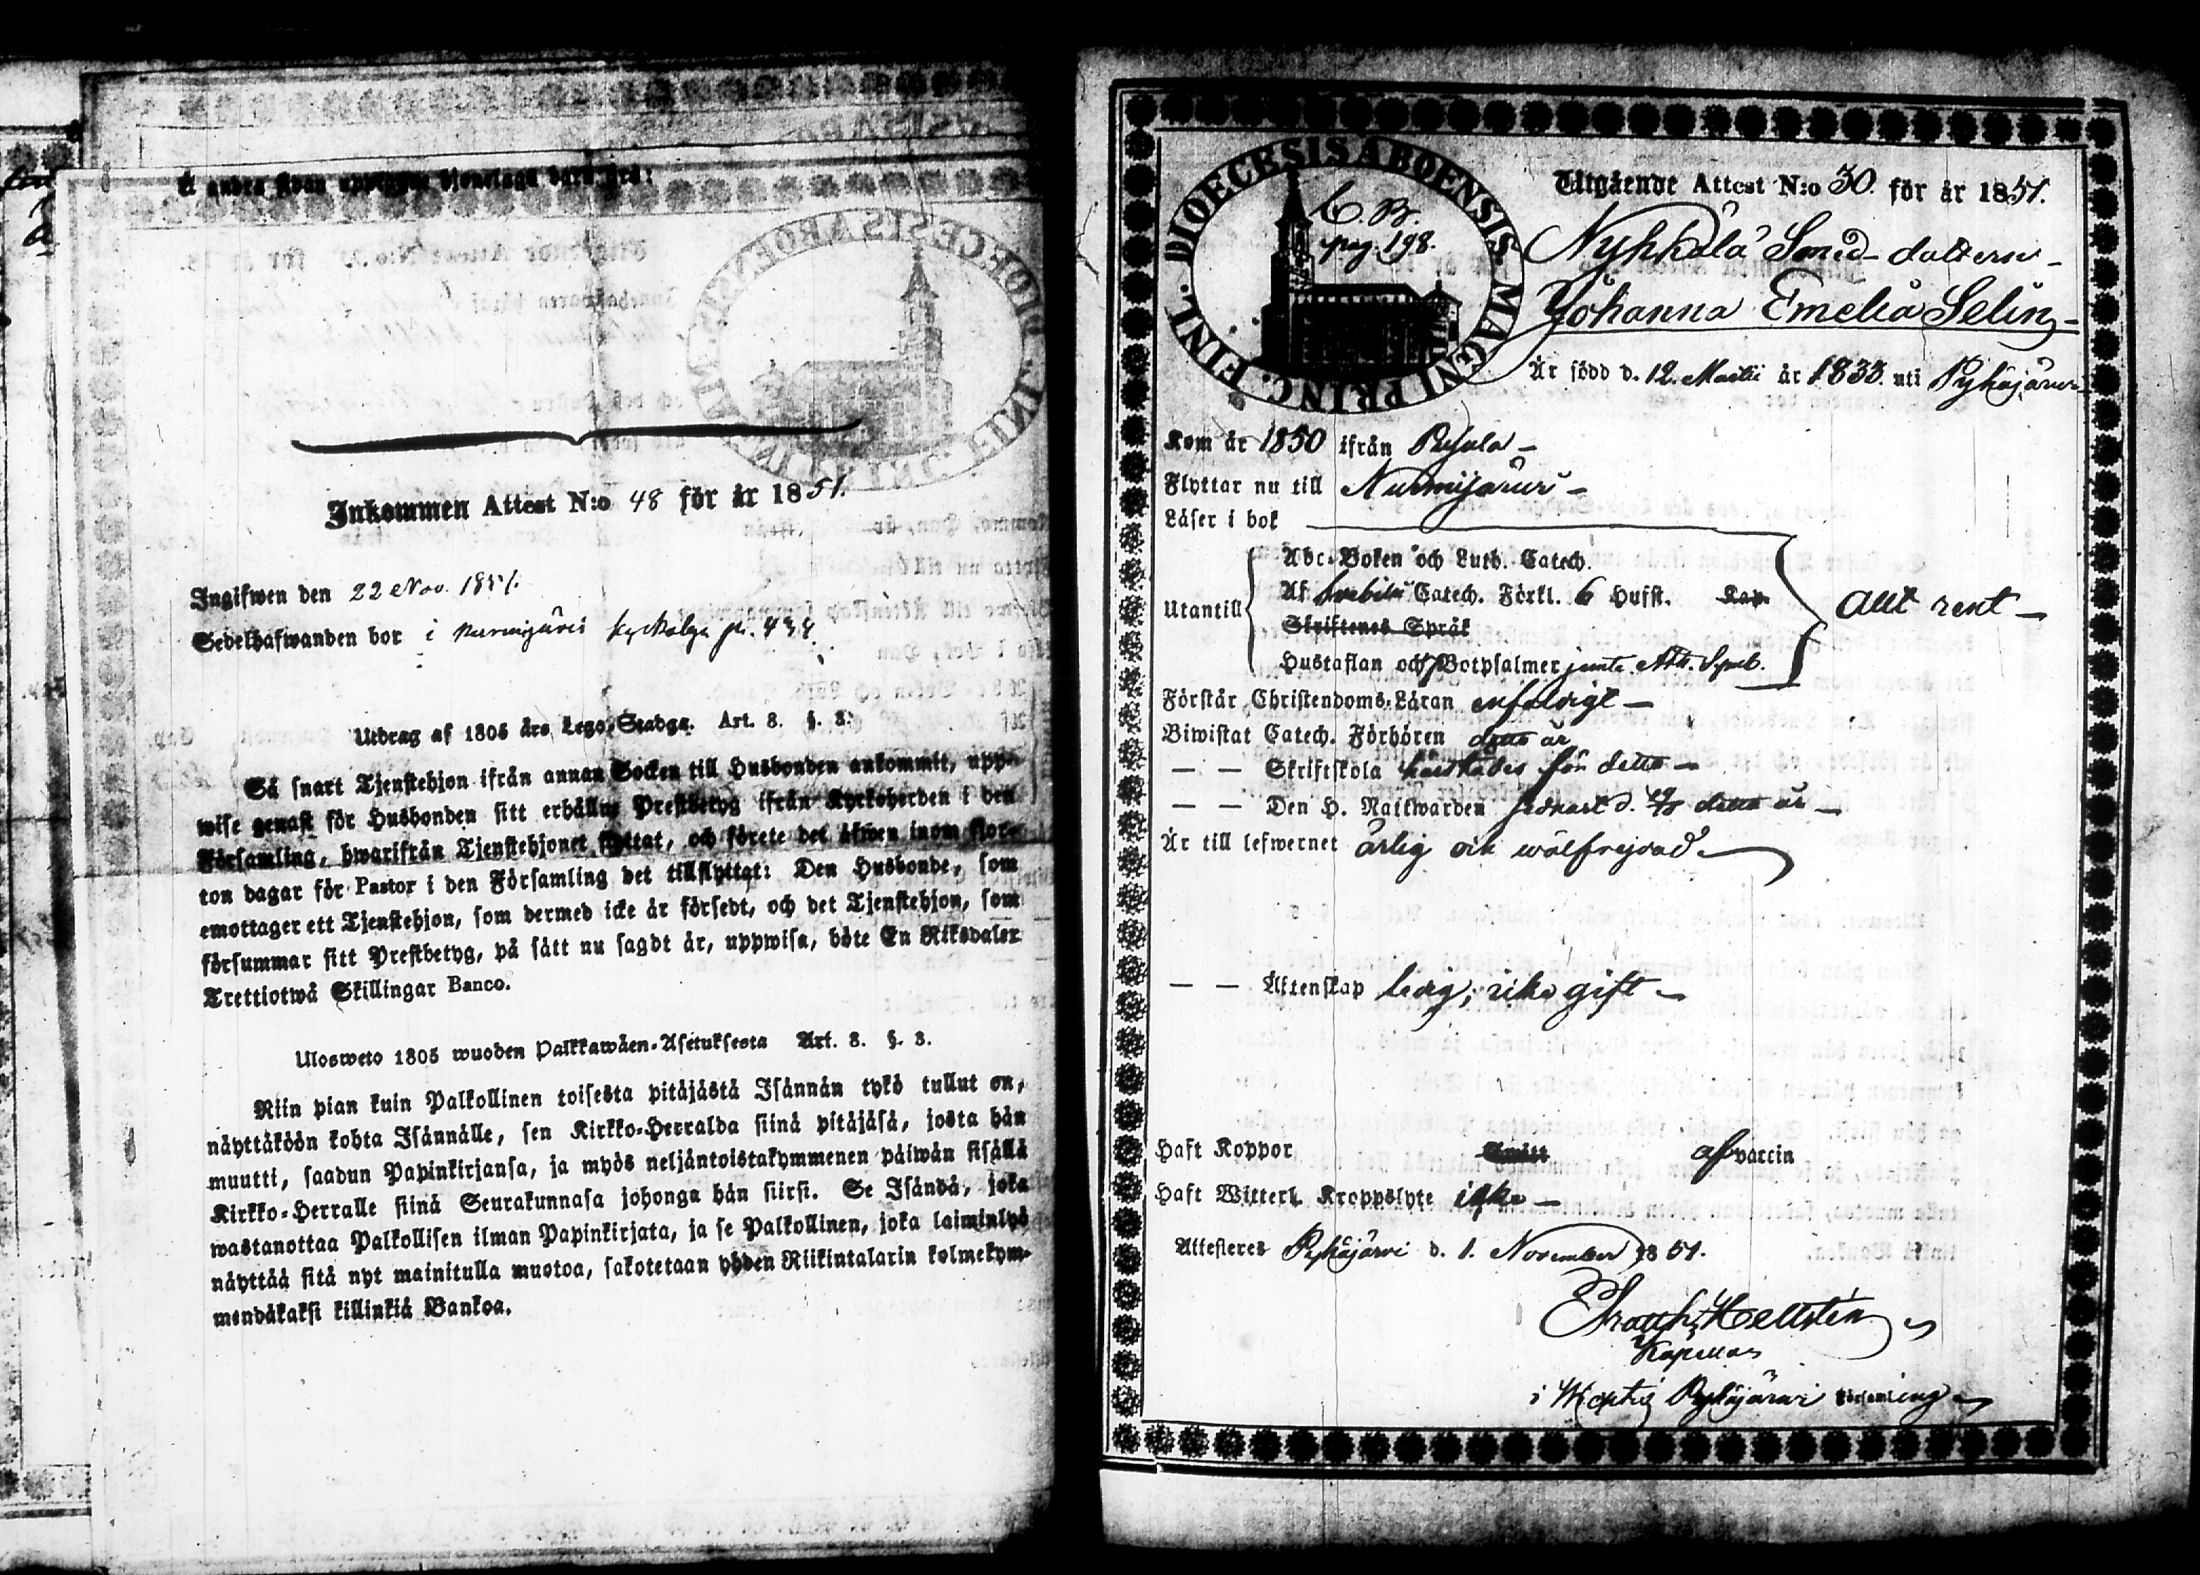 Inkommen Attest N:o 48 för år 1851.
Ingifwen den 22 Nov. 1851.
Sedelhafwanden bor i Nurmijärvi
Utdrag af 1805 års Lego-Stadga. Art. 8. §. 3.
Så snart Tjenstehjon ifrån annan Socken till Husbonden ankommit, upp-
wise genast för Husbonden sitt erhållne Prestbetyg ifrån Kyrkoherden i den
Församling, hwarifrån Tjenstehjonet flyttat, och förete det äfwen inom fjor-
ton dagar för Pastor i den Församling det tillflyttat: Den Husbonde, som
emottager ett Tjenstehjon, som dermed icke är försedt, och det Tjenstehjon, som
försummar sitt Prestbetyg, på sätt nu sagdt är, uppwisa, böte En Riksdaler
Trettiotwå Skillingar Banco.
Ulosweto 1805 wuoden Palkkawäen-Asetuksesta Art. 8. §. 3.
Niin pian kuin Palkollinen toisesta pitäjästä Isännän tykö tullut on,
näyttäköön kohta Isännälle, sen Kirkko-Herralda siinä pitäjäsä, josta hän
muutti, saadun Papinkirjansa, ja myös neljäntoistakymmenen päiwän sisällä
Kirkko-Herralle siinä Seurakunnasa johonga hän siirsi. Se Isändä, joka
wastanottaa Palkollisen ilman Papinkirjata, ja se Palkollinen, joka laiminlyö
näyttää sitä nyt mainitulla muotoa, sakotetaan yhden Riikintalarin kolmekym-
mendäkaksi killinkiä Bankoa.
DIOECESIS ABOENSIS MAGNI PRINC. FINL.
C. B.
pag. 198.
Utgående Attest N:o 30. för år 1851.
Nykkälä Smed-dottern
Johanna Emelia Selin
Är född d. 12. Martii år 1833. uti Pyhäjärvi
Kom år 1850 ifrån Pusula
Flyttar nu till Nurmijärvi
Läser i bok
Utantill
Abc-Boken och Luth. Catech.
Af Svebilii Catech. Förkl. 6 Hufst. Kap.
Skriftenes Språk
Hustaflan och 7 Botpsalmer jemte Ath. Symb.
allt rent
Förstår Christendoms-Läran enfaldigt
Biwistat Catech. Förhören detta år
— — Skriftskola för detta
— — Den H. Nattwarden sednast d. detta år
Är till lefwernet ärlig och wälfrejdad
— — Äktenskap ledig, icke gift
Haft Koppor Smått af vaccin
Haft Witterl. Kroppslyte icke
Attesteras Pyhäjärvi d. 1. November 1851.
Hellstén
Kapellan
i Pyhäjärvi Församling